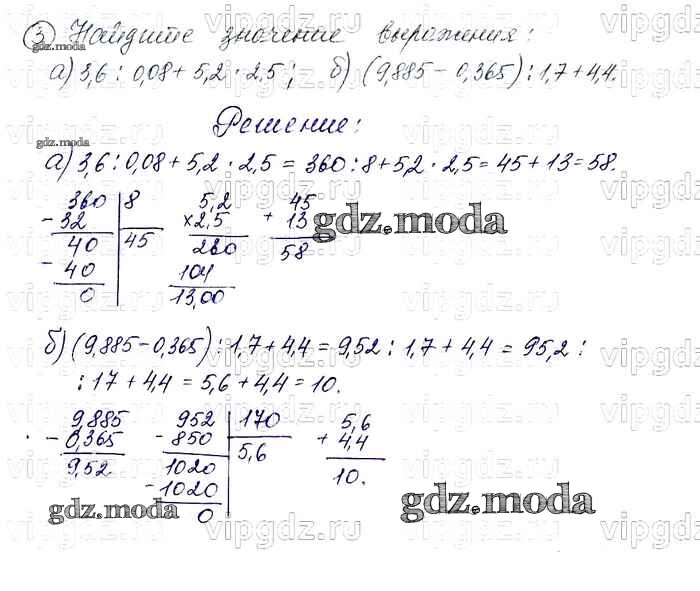 3 Найдите значение выражения:
а) 3,6 : 0,08 + 5,2 · 2,5; б) (9,885 - 0,365) : 1,7 + 4,4.
Решение:
а) 3,6 : 0,08 + 5,2 · 2,5 = 360 : 8 + 5,2 · 2,5 = 45 + 13 = 58.
360 8 5,2 45
- 32 45 × 2,5 + 13
40 260 58
- 40 104
0 13,00
б) (9,885 - 0,365) : 1,7 + 4,4 = 9,52 : 1,7 + 4,4 = 95,2 :
: 17 + 4,4 = 5,6 + 4,4 = 10.
9,885 952 170 5,6
- 0,365 - 850 5,6 + 4,4
9,52 1020 10.
- 1020
0
gdz.moda
gdz.moda
gdz.moda
gdz.moda
gdz.moda
vipgdz.ru